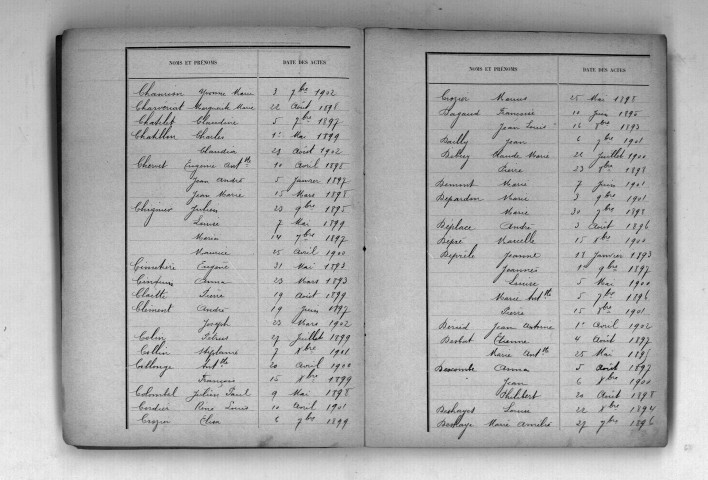 NOMS ET PRÉNOMS DATE DES ACTES
Yvonne Marie 3 7bre 1902
Marguerite Marie 22 Août 1898
Chatelet Claudine 5 7bre 1897
Chatillon Charles 1er Mai 1899
Claudia 29 Août 1902
Chervet Eugénie Antte 10 Avril 1895
Jean André 5 Janvier 1897
Jean Marie 15 Mars 1898
Chignier Julien 23 9bre 1895
Louise 7 Mai 1899
Maria 14 7bre 1897
Maurice 25 Avril 1900
Cimetière Eugène 31 Mai 1893
Anna 23 Mars 1893
Pierre 19 Août 1899
Clément André 19 Juin 1897
Joseph 23 Mars 1902
Colin 27 Juillet 1899
Collin Stéphanie 7 Xbre 1901
Collonge Antte 20 Avril 1900
François 15 Xbre 1899
Colombel Julien Paul 9 Mai 1898
Cordier René Louis 10 Avril 1901
Crozier Élisa 6 7bre 1899
NOMS ET PRÉNOMS DATE DES ACTES
Crozier Marius 25 Mai 1898
Françoise 10 Juin 1895
Jean Louis 16 8bre 1893
Jean 6 7bre 1901
Claude Marie 22 Juillet 1900
Pierre 23 1898
Marie 7 Juin 1901
Marie 3 9bre 1901
Marie 30 7bre 1898
Deplace André 3 Août 1896
Marcelle 15 Xbre 1900
Jeanne 18 Janvier 1893
1897
Louise 5 Mai 1900
Marie Antte 5 7bre 1896
Pierre 15 Xbre 1901
Jean Antoine 1er Avril 1902
Étienne 4 Août 1897
Marie Antte 25 Mai
Descombe Anna 5 Août 1897
Jean 6 Xbre 1900
Philibert 20 Août 1898
Deshayes Louise 22 Xbre 1894
Deshaye Marie Amélie 27 7bre 1896